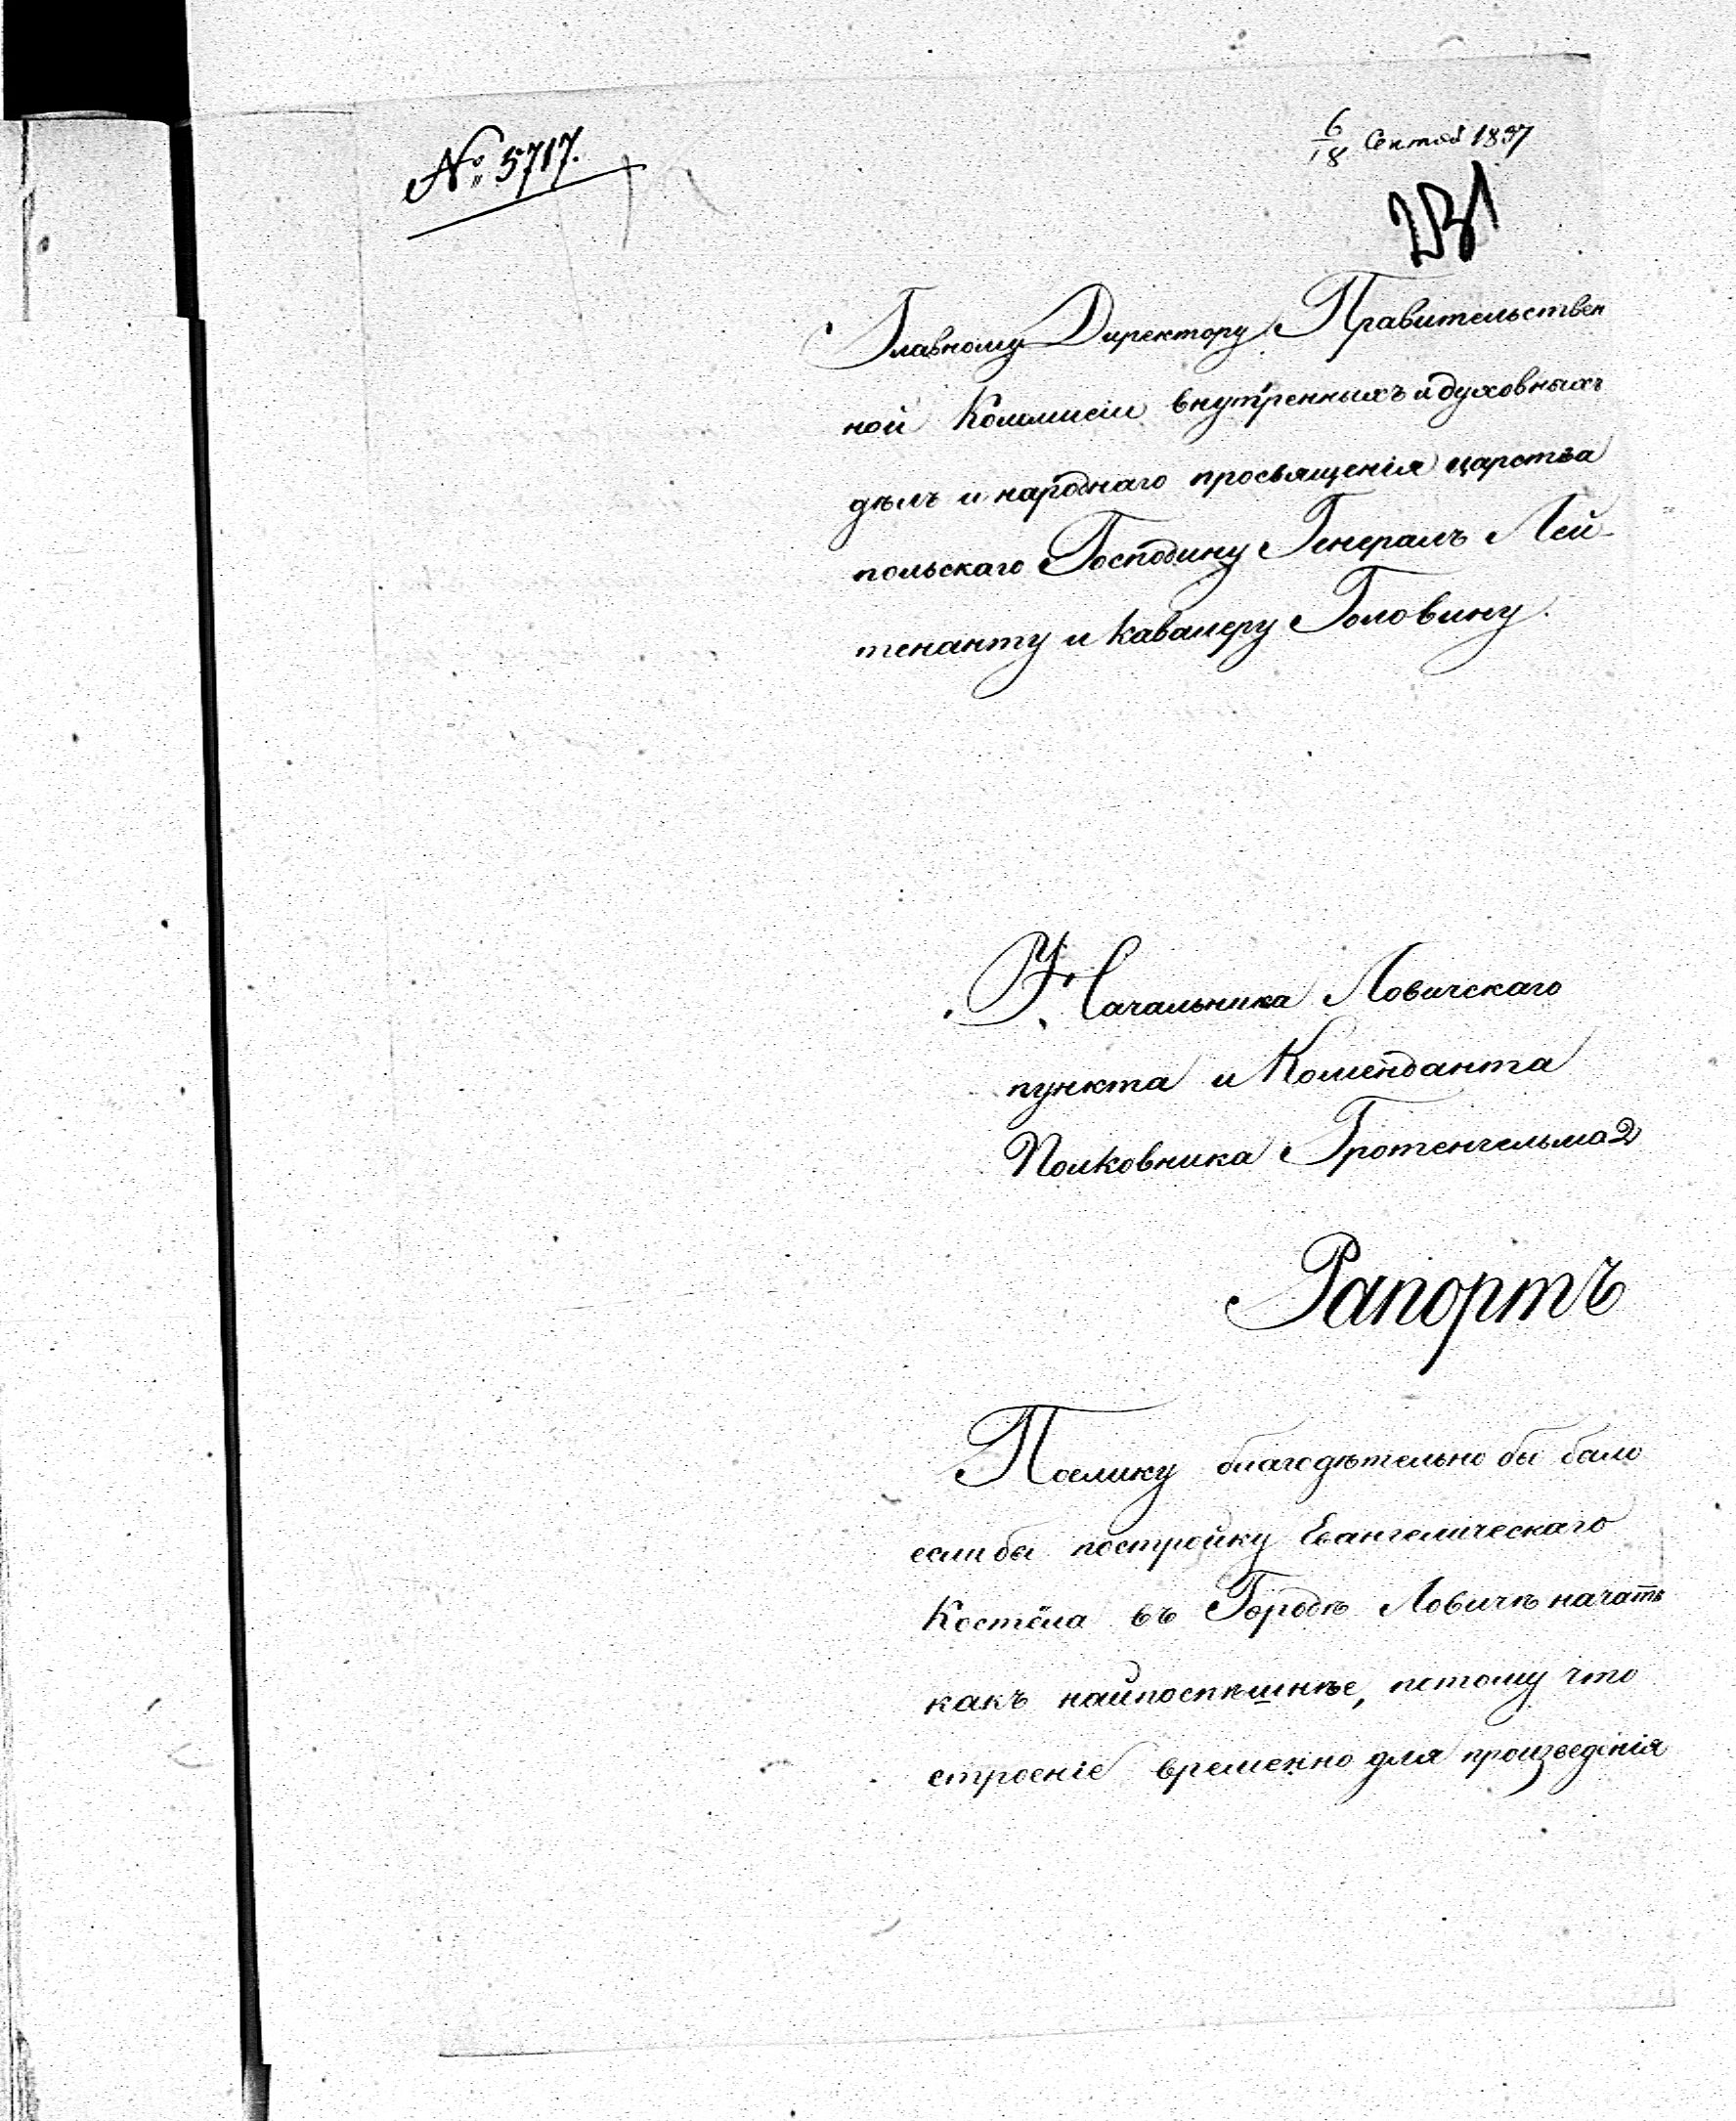 № 5717.
6/18 Сентяб 1837
231
Главному Директору Правительствен
ной Коммисіи внутренныхъ и духовныхъ
дѣлъ и народнаго просвященія царства
польскаго Господину Генералъ Лей-
тенанту и кавалеру Головину.
Начальника Ловичскаго
пункта и Коменданта
Полковника Гротенгельма 2
Рапортъ
Поелику благодѣтельно бы было
если бы постройку Евангелическаго
Костёла въ Городѣ Ловичѣ начать
какъ найпоспѣшнѣе, потому что
строеніе временно для произведенія